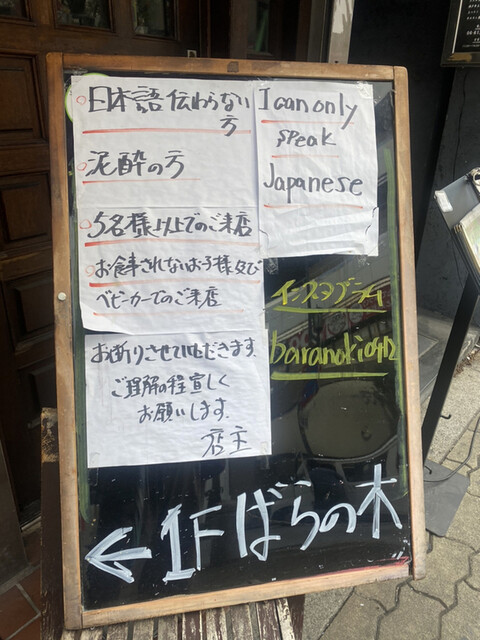 日本語伝わらない
方
泥酔の方
5名様以上でのご来店
お食事されないお子様及び
ベビーカーでのご来店
お断りさせていただきます.
ご理解の程宜しく
お願いします.
店主
I can only
speak
Japanese
インスタグラム
←1Fばらの木